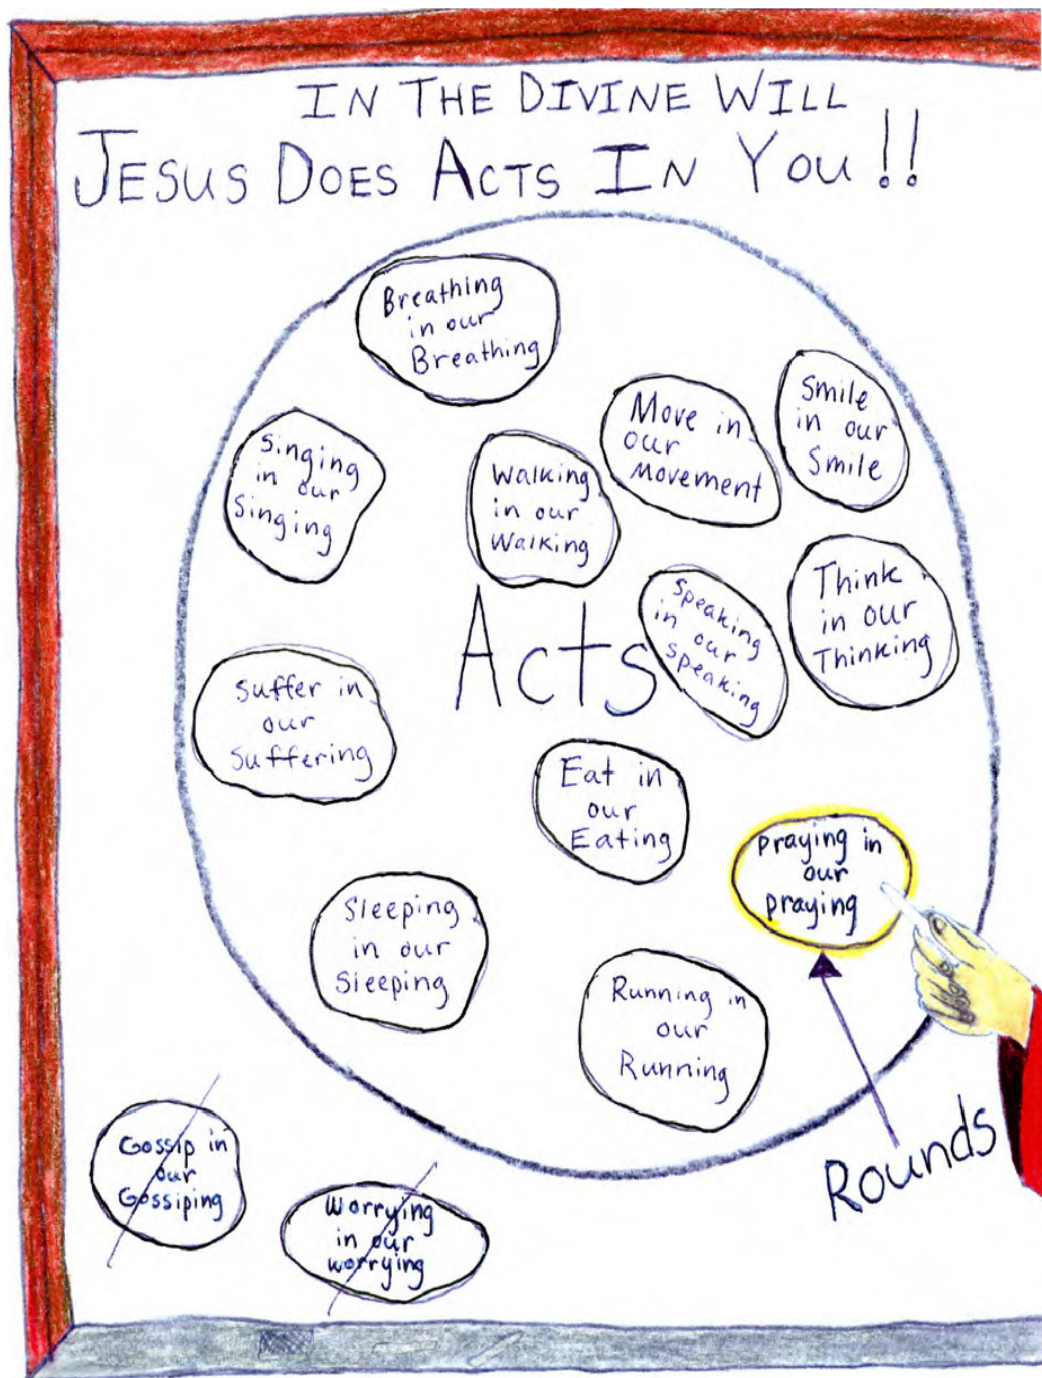 IN THE DIVINE WILL
JESUS DOES ACTS IN YOU!!
Breathing
in our
Breathing
Smile
in our
Smile
Move in
our
Movement
Singing
in our
Singing
Walking
in our
Walking
Think
in our
Thinking
Speaking
in our
speaking
Acts
Suffer in
our
Suffering
Eat in
our
Eating
Praying in
our
praying
Sleeping
in our
Sleeping
Running in
our
Running
Rounds
Gossip in
our
Gossiping
Worrying
in our
worrying